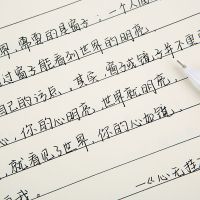 界,需要的是窗子:一个人
过窗子能看到世界的明亮
自己的污点。其实,窗子或镜子并不重
心,你的心明亮,世界就明亮,
,就看见了世界,你的心
我。
《心无挂